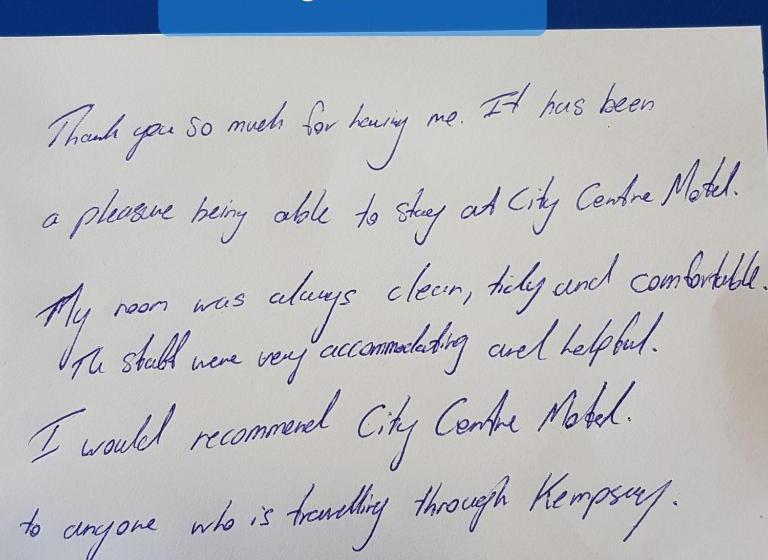 Thank you so much for having me. It has been
a pleasure being able to stay at City Centre Motel.
My room was always clean, tidy and comfortable.
The staff were very accommodating and helpful.
I would recommend City Centre Motel.
to anyone who is travelling through Kempsey.